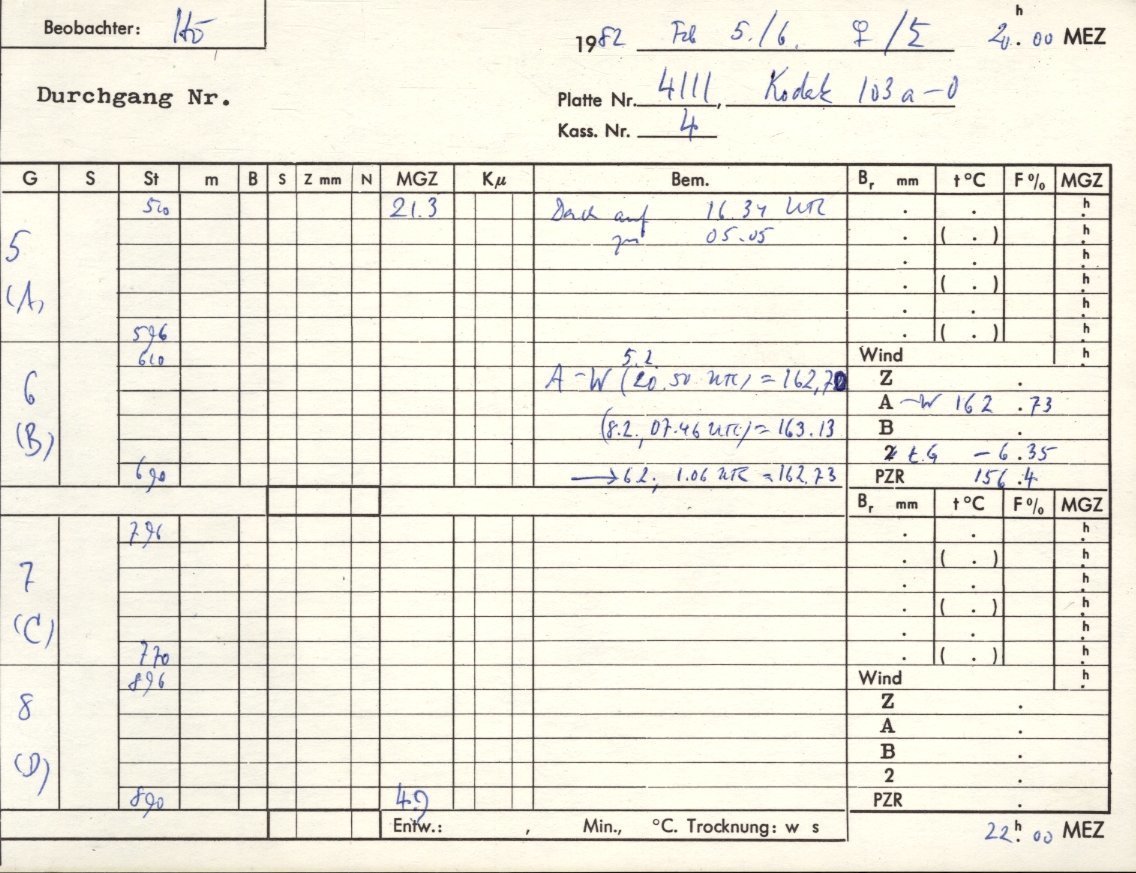 Beobachter: Hö
1982 Feb 5./6. ♀/Σ 20h.00 MEZ
Durchgang Nr.
Platte Nr. 4111, Kodak 103a-0
Kass. Nr. 4
G S St m B S Z mm N MGZ Kμ Bem. Br mm t °C F % MGZ
510 21.3 Dach auf 16.34 UTC . . h
5 zu 05.05 . ( . ) h
. . h
(A) . ( . ) h
. . h
596 . ( . ) h
610 5.2. Wind h
6 A-W (20.50 UTC) = 162,70 Z .
A-W 162.73
(B) (8.2., 07.46 UTC) = 163.13 B .
2 t.G -6.35
690 → 6.2., 1.06 UTC = 162,73 PZR 156.4
Br mm t °C F % MGZ
796 . . h
. ( . ) h
7 . . h
. ( . ) h
(C) . . h
770 . ( . ) h
896 Wind h
8 Z .
A .
B .
(D) 2 .
890 4.9 PZR .
Entw.: , Min., °C. Trocknung: w s
22h.00 MEZ